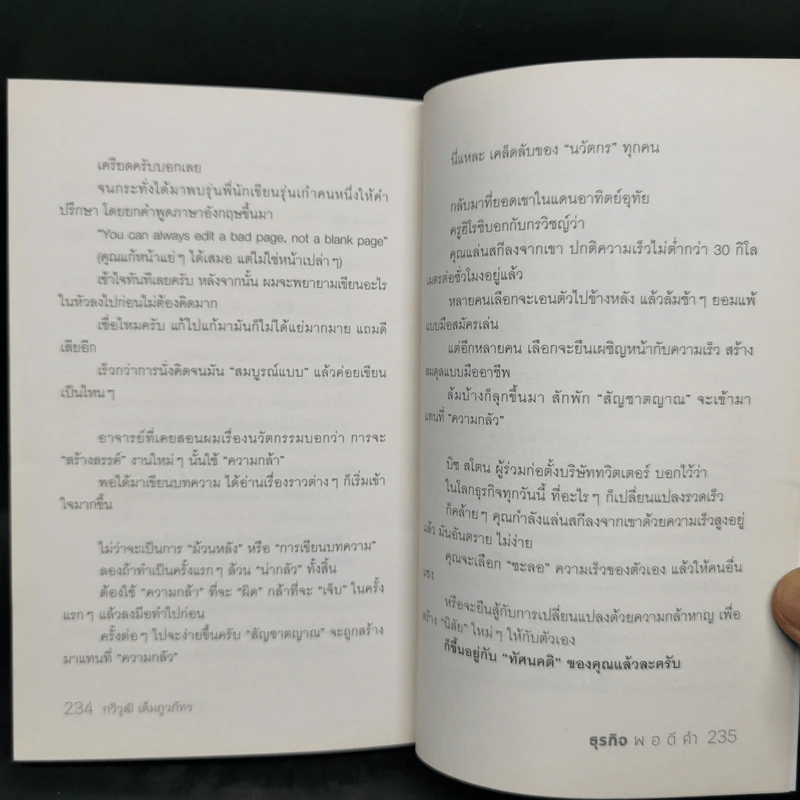 เครียดครับบอกเลย
จนกระทั่งได้มาพบรุ่นพี่นักเขียนรุ่นเก๋าคนหนึ่งให้คำ
ปรึกษา โดยยกคำพูดภาษาอังกฤษขึ้นมา
"You can always edit a bad page, not a blank page"
(คุณแก้หน้าแย่ๆ ได้เสมอ แต่ไม่ใช่หน้าเปล่าๆ)
เข้าใจทันทีเลยครับ หลังจากนั้น ผมจะพยายามเขียนอะไร
ในหัวลงไปก่อนไม่ต้องคิดมาก
เชื่อไหมครับ แก้ไปแก้มามันก็ไม่ได้แย่มากมาย แถมดี
เสียอีก
เร็วกว่าการนั่งคิดจนมัน "สมบูรณ์แบบ" แล้วค่อยเขียน
เป็นไหนๆ
อาจารย์ที่เคยสอนผมเรื่องนวัตกรรมบอกว่า การจะ
"สร้างสรรค์" งานใหม่ๆ นั้นใช้ "ความกล้า"
พอได้มาเขียนบทความ ได้อ่านเรื่องราวต่างๆ ก็เริ่มเข้า
ใจมากขึ้น
ไม่ว่าจะเป็นการ "ม้วนหลัง" หรือ "การเขียนบทความ"
ลองถ้าทำเป็นครั้งแรกๆ ล้วน "น่ากลัว" ทั้งสิ้น
ต้องใช้ "ความกล้า" ที่จะ "ผิด" กล้าที่จะ "เจ็บ" ในครั้ง
แรกๆ แล้วลงมือทำไปก่อน
ครั้งต่อๆ ไปจะง่ายขึ้นครับ "สัญชาตญาณ" จะถูกสร้าง
มาแทนที่ "ความกลัว"
234 กวีวุฒิ เต็มภูวภัทร
นี่แหละ เคล็ดลับของ "นวัตกร" ทุกคน
กลับมาที่ยอดเขาในแดนอาทิตย์อุทัย
ครูฮิโรชิบอกกับกรวิชญ์ว่า
คุณเล่นสกีลงจากเขา ปกติความเร็วไม่ต่ำกว่า 30 กิโล
เมตรต่อชั่วโมงอยู่แล้ว
หลายคนเลือกจะเอนตัวไปข้างหลัง แล้วล้มช้าๆ ยอมแพ้
แบบมือสมัครเล่น
แต่อีกหลายคน เลือกจะยืนเผชิญหน้ากับความเร็ว สร้าง
สมดุลแบบมืออาชีพ
ล้มบ้างก็ลุกขึ้นมา สักพัก "สัญชาตญาณ" จะเข้ามา
แทนที่ "ความกลัว"
บิซ สโตน ผู้ร่วมก่อตั้งบริษัททวิตเตอร์ บอกไว้ว่า
ในโลกธุรกิจทุกวันนี้ ที่อะไรๆ ก็เปลี่ยนแปลงรวดเร็ว
ก็คล้ายๆ คุณกำลังเล่นสกีลงจากเขาด้วยความเร็วสูงอยู่
แล้ว มันอันตราย ไม่ง่าย
คุณจะเลือก "ชะลอ" ความเร็วของตัวเอง แล้วให้คนอื่น
แซง
หรือจะยืนสู้กับการเปลี่ยนแปลงด้วยความกล้าหาญ เพื่อ
สร้าง "นิสัย" ใหม่ๆ ให้กับตัวเอง
ก็ขึ้นอยู่กับ "ทัศนคติ" ของคุณแล้วละครับ
ธุรกิจ พ อ ดี คำ 235